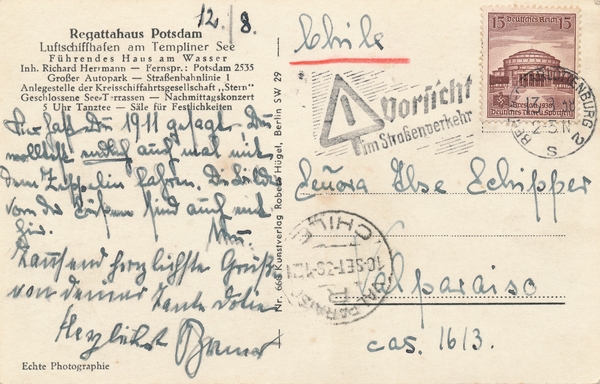 12./8.
Regattahaus Potsdam
Luftschiffhafen am Templiner See
Führendes Haus am Wasser
Inh. Richard Herrmann — Fernspr.: Potsdam 2535
Großer Autopark — Straßenbahnlinie 1
Anlegestelle der Kreisschiffahrtsgesellschaft „Stern"
Geschlossene See-Terrassen — Nachmittagskonzert
5 Uhr Tanztee — Säle für Festlichkeiten
Du 1911 gesagt, Du
wolltest endlich auch mal mit
dem Zeppelin fahren. Die Bilder
von der sind auch
Tausend herzlichste Grüße
von deiner Tante
Herzlichst
Echte Photographie
Nr. 668 Kunstverlag Robert Hügel, Berlin SW 29
Chile
Vorsicht
im Straßenverkehr
15 Deutsches Reich 15
Señora Ilse Schipper
VALPARAISO
10 SET 38
CHILE
Valparaiso
cas. 1613.